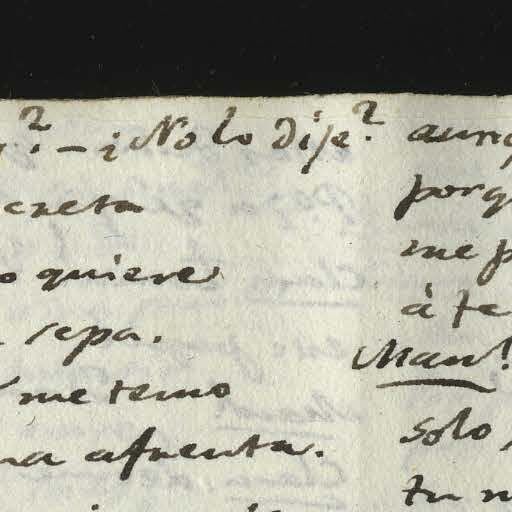 ? – ¿No lo dije?
creta
quiere
sepa.
me temo
afrenta.
aunq
porq
me p
à te
Man!
solo
tu